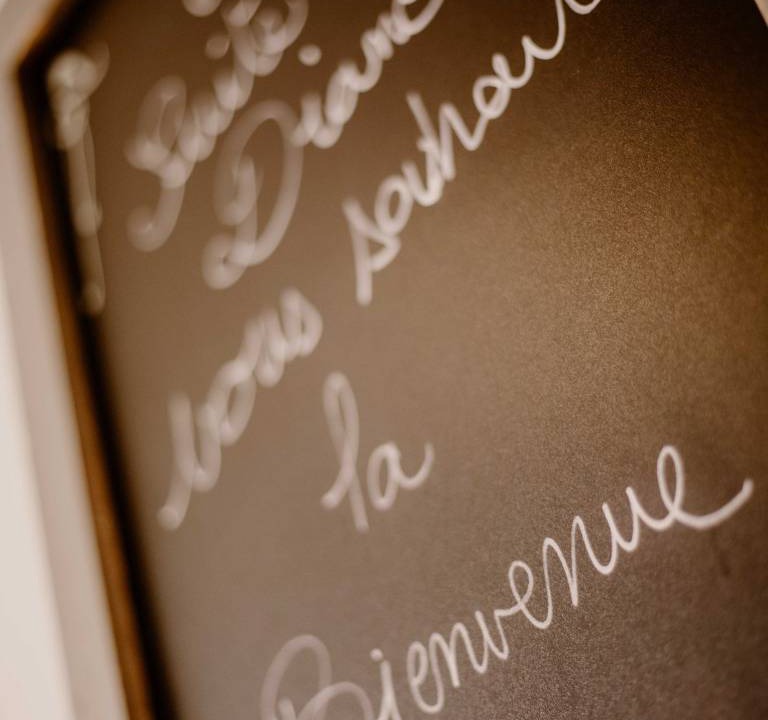 Suite
Diane
vous souhai
la
Bienvenue